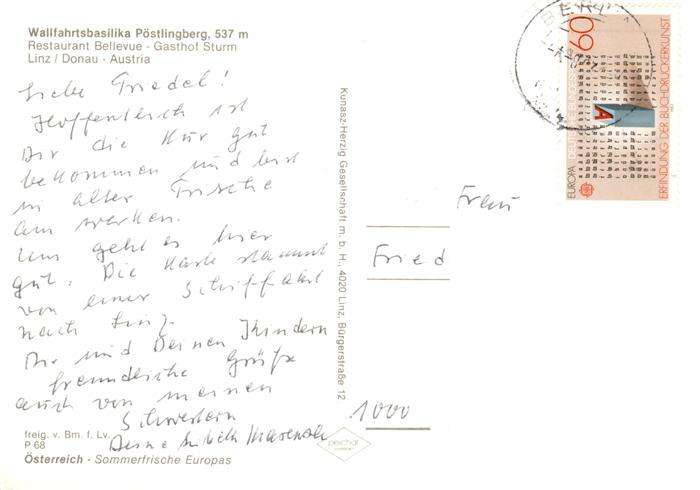 Wallfahrtsbasilika Pöstlingberg, 537 m
Restaurant Bellevue - Gasthof Sturm
Linz / Donau - Austria
Liebe Friedel!
Hoffentlich ist
Dir die Kur gut
bekommen und bist
in alter Frische
am werken.
Uns geht es hier
gut. Die Karte stammt
von einer Schiffahrt
nach Linz.
Dir und Deinen Kindern
freundliche Grüße
auch von meinen
Schwestern
Deine
freig. v. Bm. f. Lv.
P 68
Österreich - Sommerfrische Europas
Kunasz-Herzig Gesellschaft m. b. H., 4020 Linz, Bürgerstraße 12
Frau
Fried
1000
BERLIN
60
EUROPA
ERFINDUNG DER BUCHDRUCKERKUNST
A